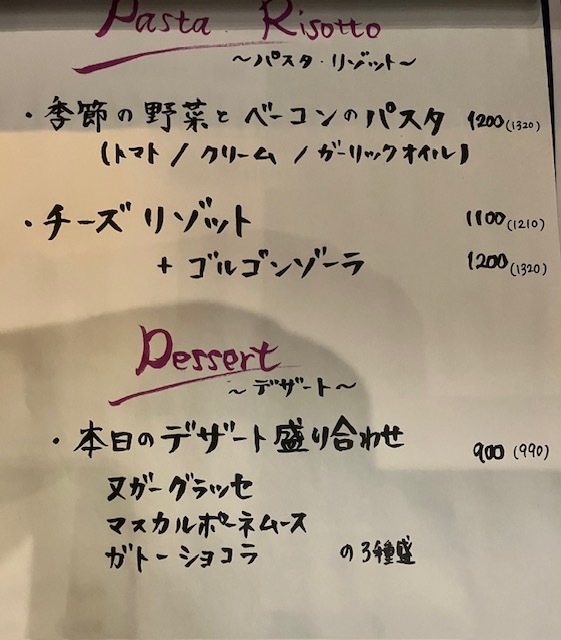 Pasta・Risotto
～パスタ・リゾット～
・季節の野菜とベーコンのパスタ 1200(1320)
(トマト/クリーム/ガーリックオイル)
・チーズリゾット 1100(1210)
+ ゴルゴンゾーラ 1200(1320)
Dessert
～デザート～
・本日のデザート盛り合わせ 900(990)
ヌガーグラッセ
マスカルポーネムース
ガトーショコラ の3種盛